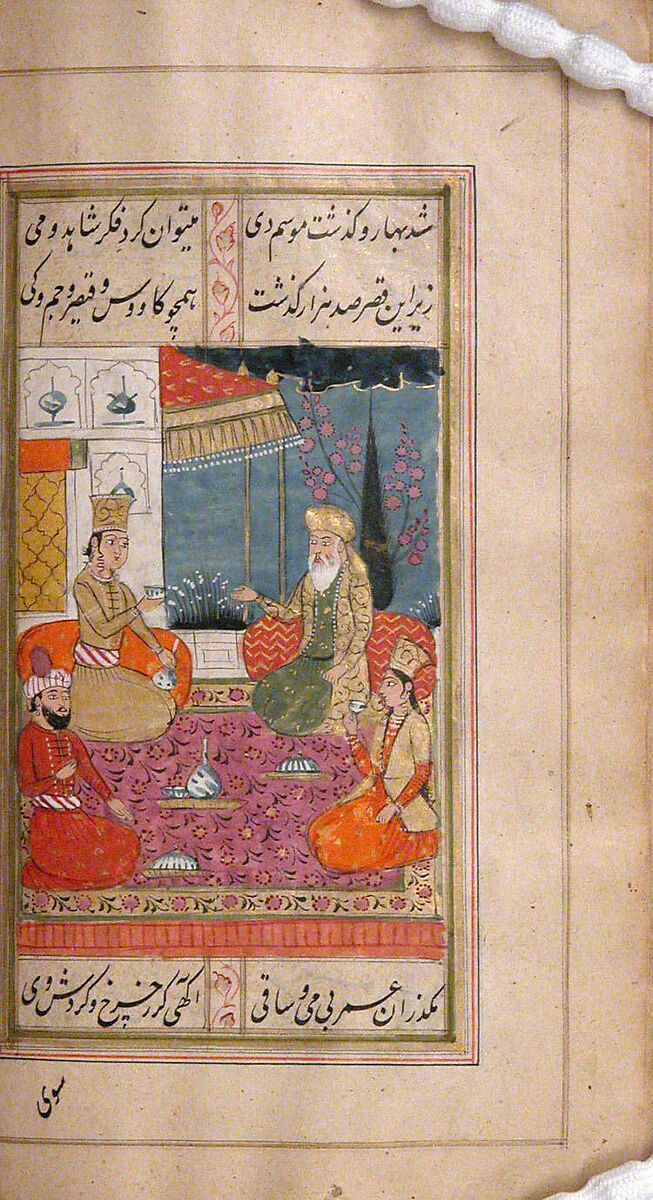 شد بهار و گذشت موسم دی میتوان کرد فکر شاهد و می
زیر این قصر صد هزار گذشت همچو کاووس و قیصر و جم و کی
مگذران عمر بی می و ساقی آگهی گر ز چرخ و گردش وی
سوی